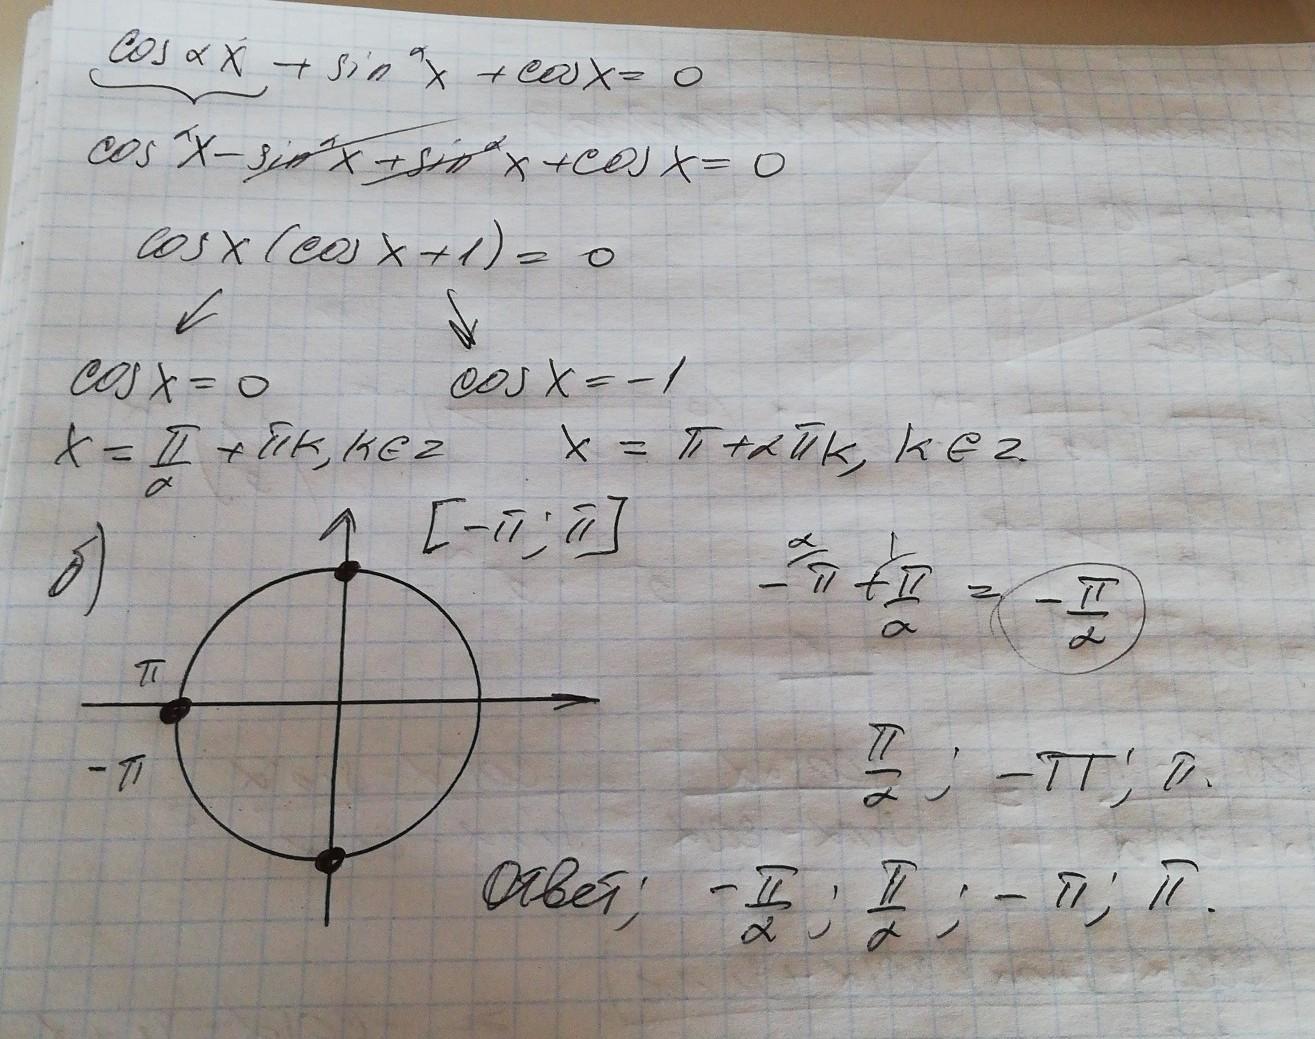 cos 2x + sin²x + cosx = 0
cos²x - sin²x + sin²x + cosx = 0
cosx (cosx + 1) = 0
cosx = 0 cosx = -1
x = π/2 + πk, k∈z x = π + 2πk, k∈z.
б) [-π; π]
-π + π/2 = -π/2
2 1
π
-π
π/2; -π; π.
Ответ; -π/2; π/2; -π; π.